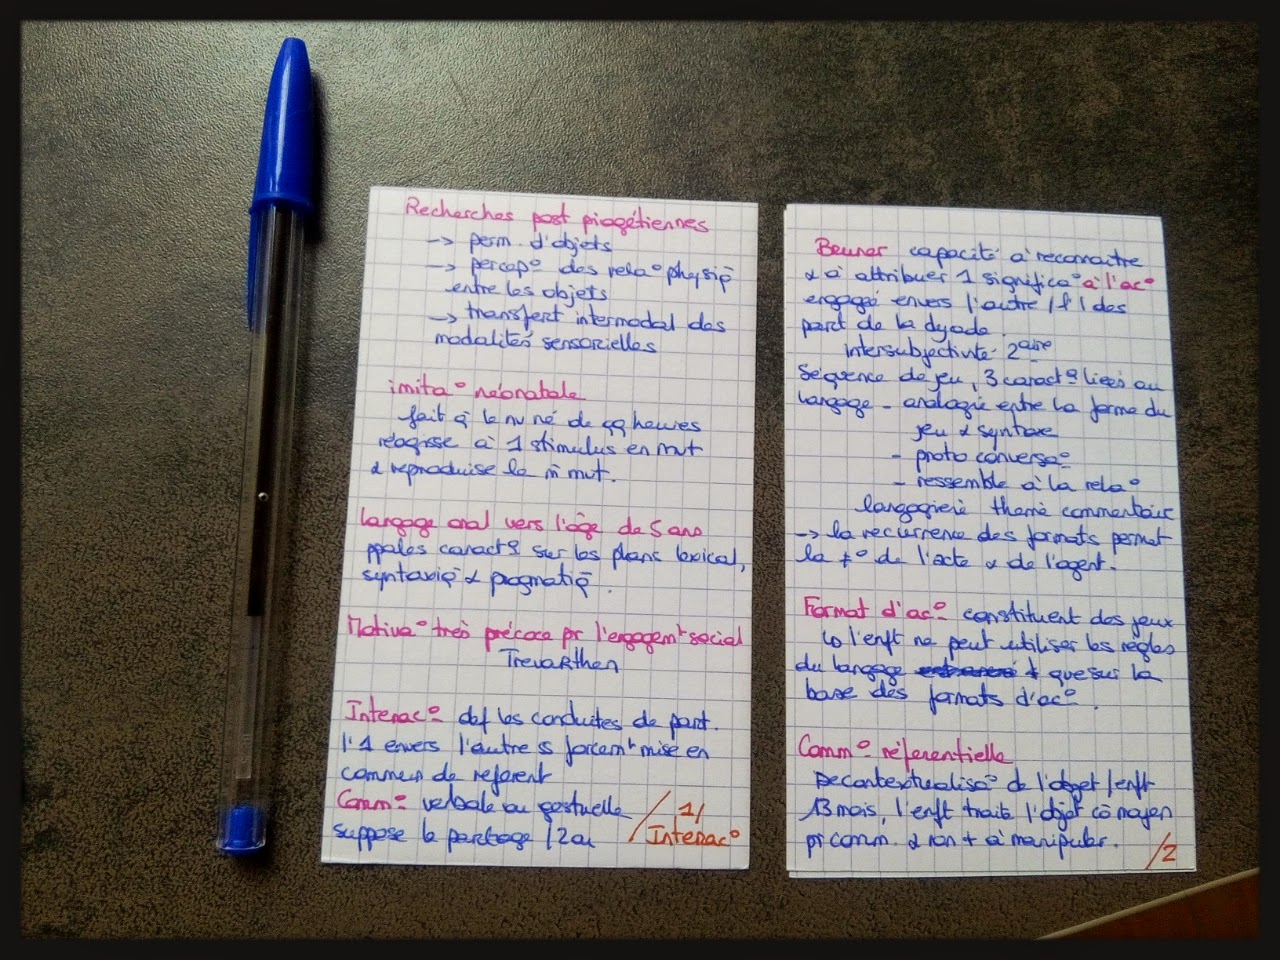 Recherches post piagétiennes
-> perm. d'objets
-> percep° des rela° physiq̄
entre les objets
-> transfert intermodal des
modalités sensorielles
imita° néonatale
fait q̄ le nv né de qq heures
réagisse à 1 stimulus en mvt
& reproduise le m̄ mvt.
langage oral vers l'âge de 5 ans
ppales caract sur les plans lexical,
syntaxiq̄ & pragmatiq̄.
Motiva° très précoce pr l'engagemt social
Trevarthen
Interac° def les conduites de part.
l'1 envers l'autre ss forcemt mise en
commun de referent
Comm° verbale ou gestuelle
suppose le partage /2
/ 1/
Interac°
Bruner capacité à reconnaître
& à attribuer 1 significa° à l'ac°
engagée envers l'autre / des
part de la dyade.
intersubjectivité 2aire
Séquence de jeu, 3 caract liées au
langage - analogie entre la forme du
jeu & syntaxe
- proto conversa°
- ressemble à la rela°
langagière thème commentaire
-> la récurrence des formats permet
la ≠° de l'acte & de l'agent.
Format d'ac° constituent des jeux
l'enft ne peut utiliser les règles
du langage que sur la
base des formats d'ac°.
Comm° référentielle
Decontextualisa° de l'objet / enft
13 mois, l'enft traite l'objet cō moyen
pr comm. & non + à manipuler.
/2